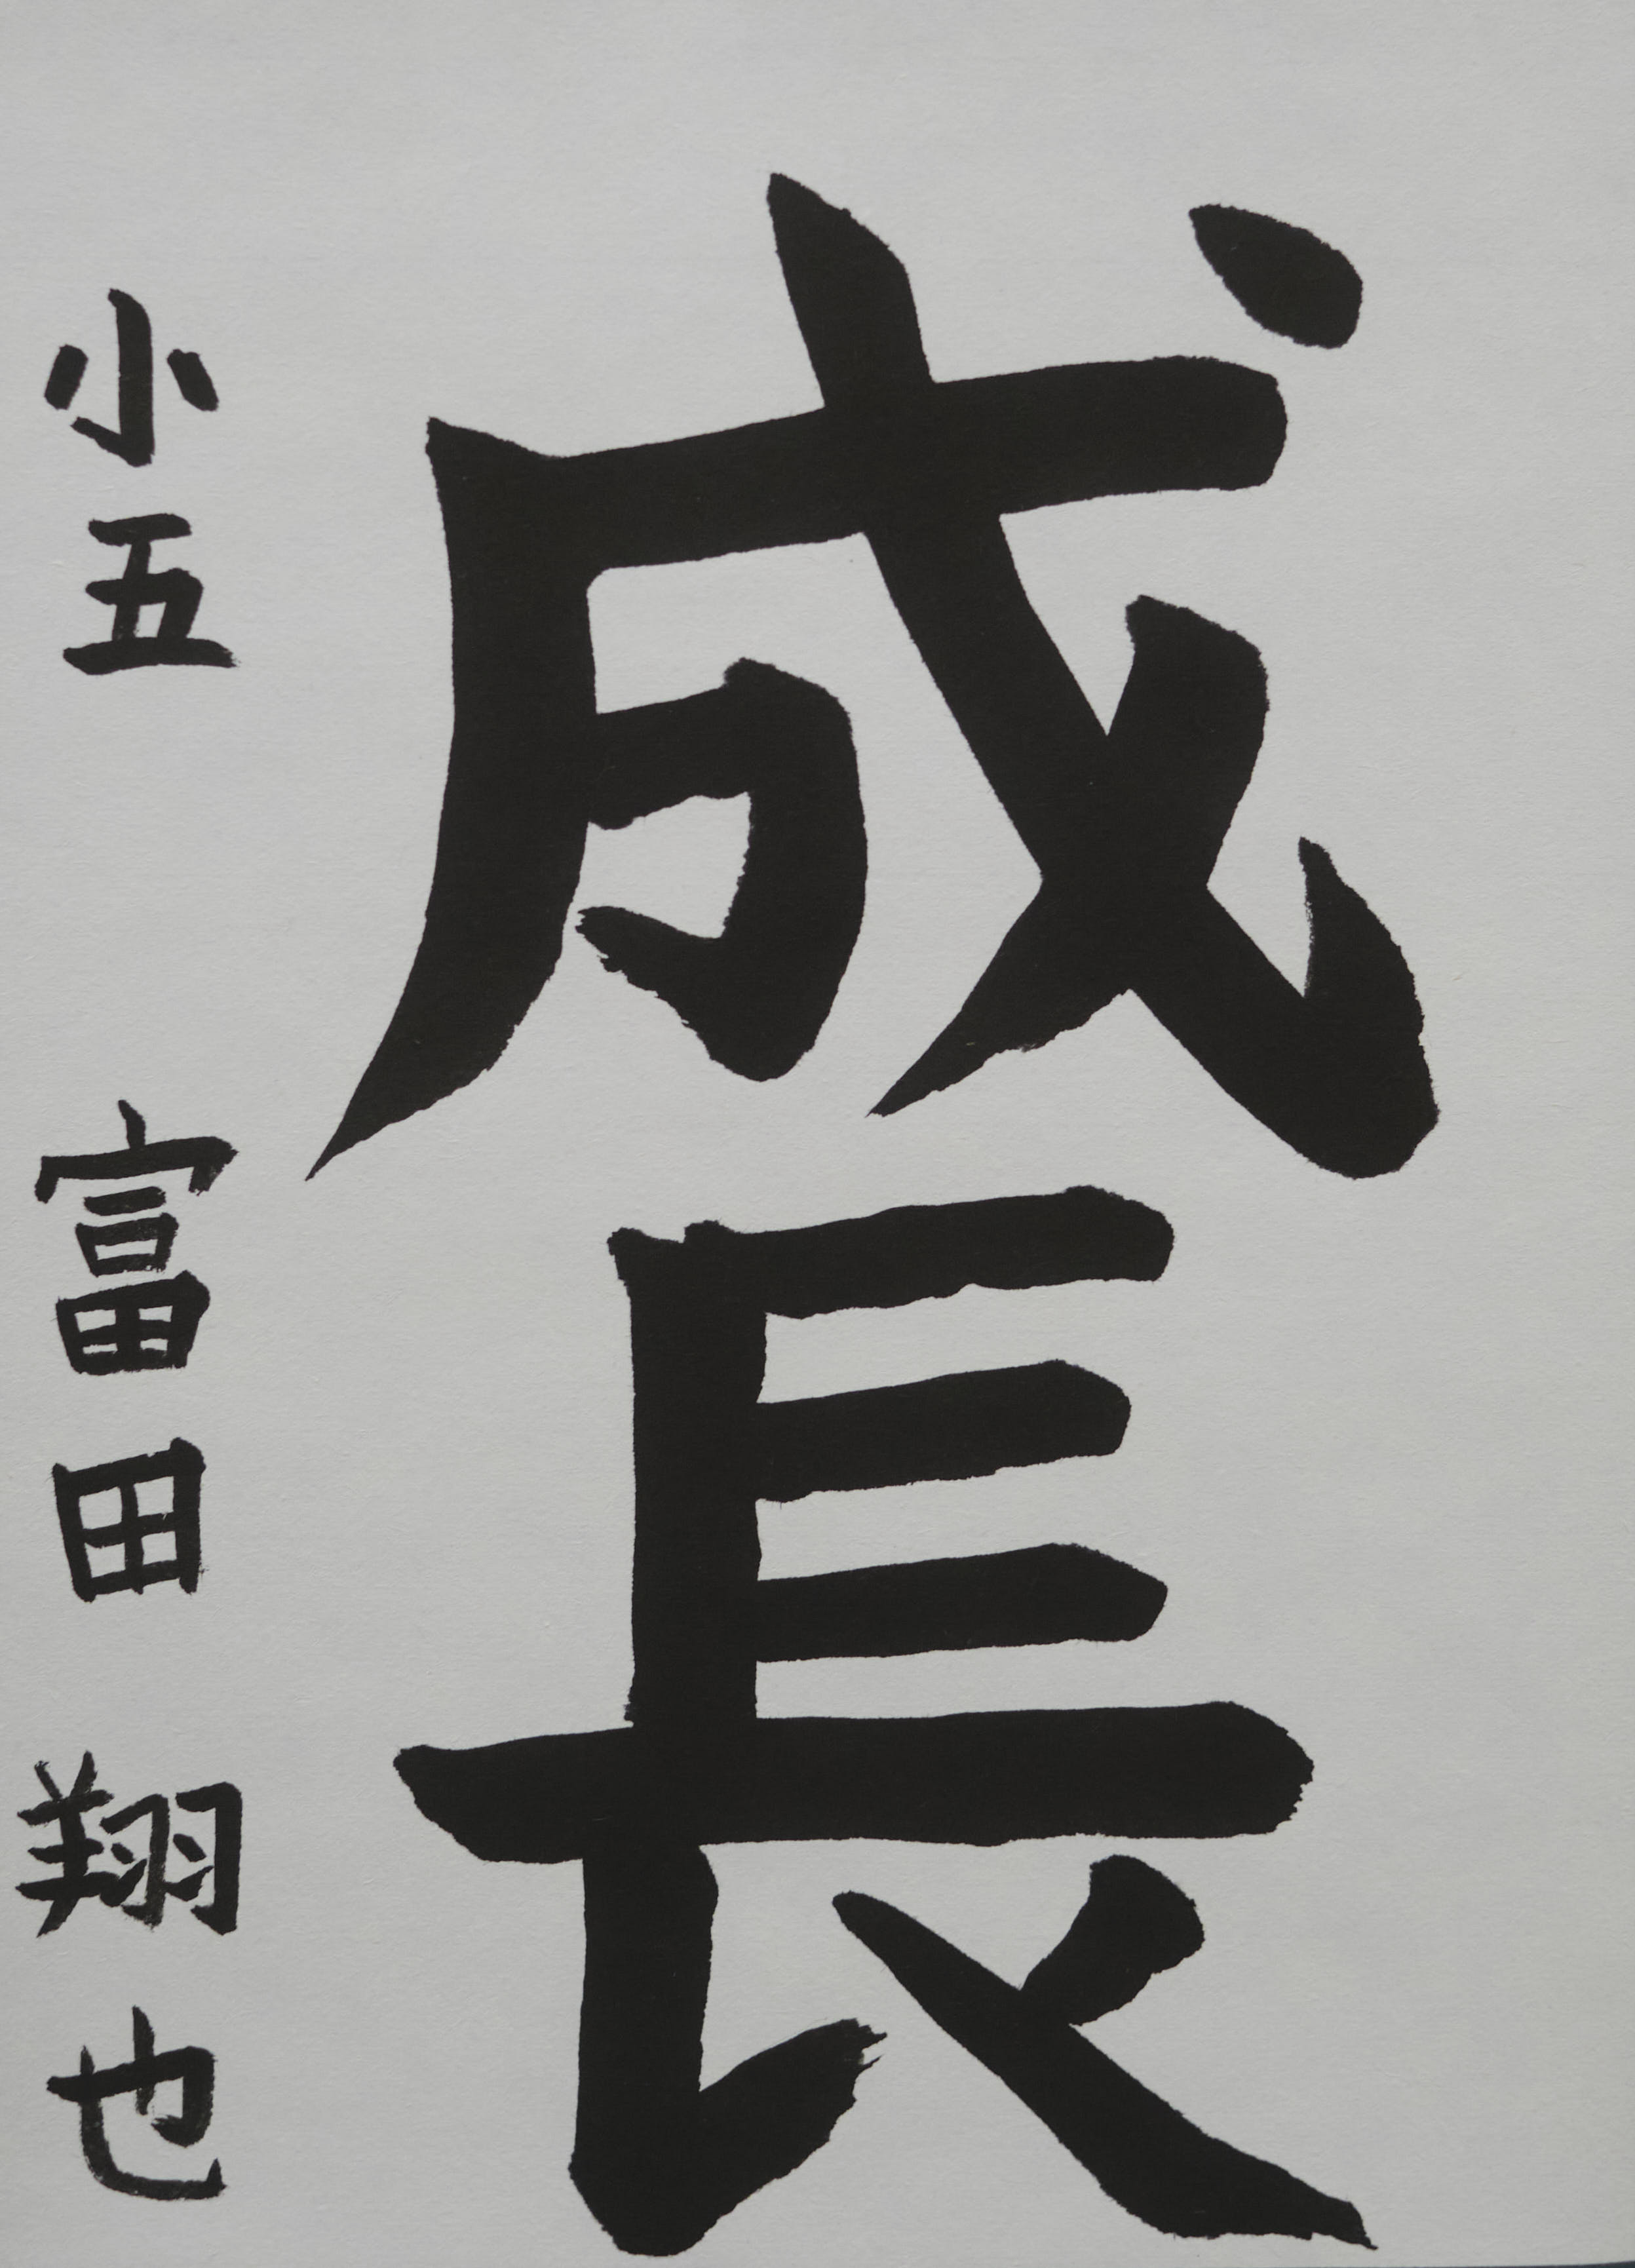 成長
小五 富田 翔也